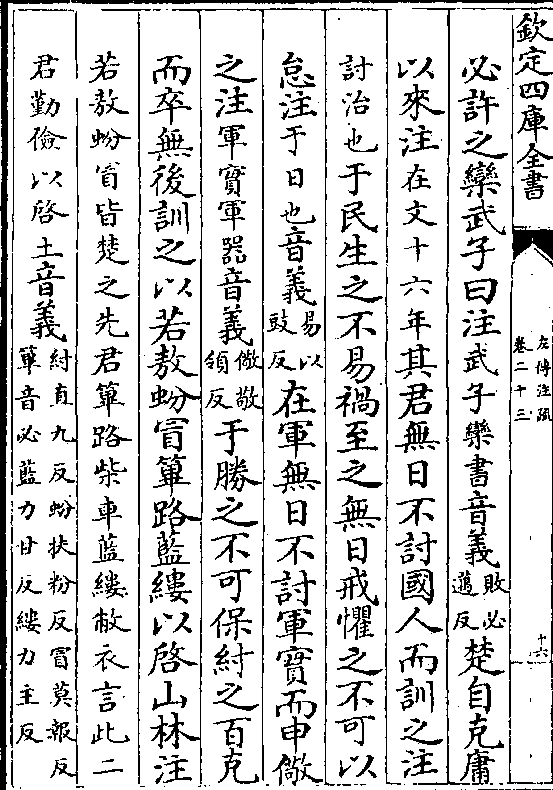 欽定四庫全書
左傳注疏
卷二十三
十六
必許之欒武子曰注武子欒書音義敗必邁反楚自克庸
以來注在文十六年其君無日不討國人而訓之注
討治也于民生之不易禍至之無日戒懼之不可以
怠注于日也音義易以豉反在軍無日不討軍實而申儆
之注軍實軍器音義儆敬領反于勝之不可保紂之百克
而卒無後訓之以若敖蚡冒篳路藍縷以啓山林注
若敖蚡冒皆楚之先君篳路柴車藍縷敝衣言此二
君勤儉以啓土音義紂直九反蚡扶粉反冒莫報反篳音必藍力甘反縷力主反